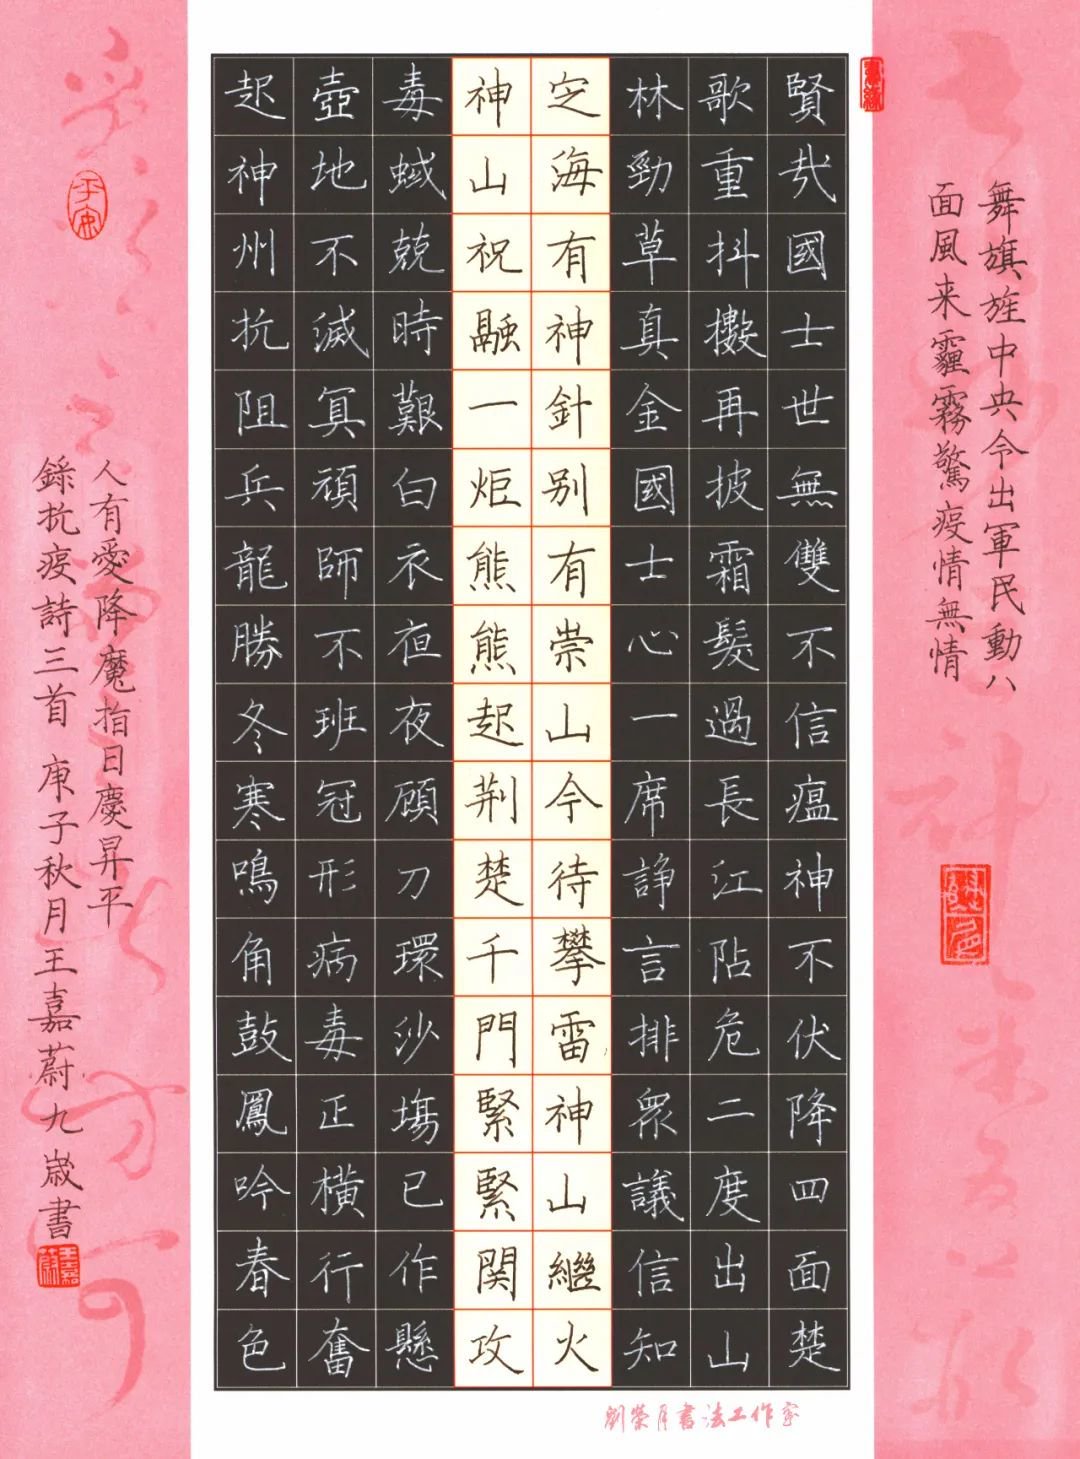 賢哉國士世無雙不信瘟神不伏降四面楚
歌重抖擻再披霜髮過長江阽危二度出山
林勁草真金國士心一席諍言排衆議信知
定海有神針别有崇山今待攀雷神山繼火
神山祝融一炬熊熊起荆楚千門緊緊関攻
毒蜮兢時艱白衣夜夜顧刀環沙塲已作懸
壺地不滅冥頑師不班冠形病毒正橫行奮
起神州抗阻兵龍勝冬寒鳴角鼓鳳吟春色
舞旗旌中央令出軍民動八
面風来霾霧驚疫情無情
人有愛降魔指日慶昇平
錄抗疫詩三首 庚子秋月王嘉蔚九歲書
平安
王嘉蔚
劉榮月書法工作室